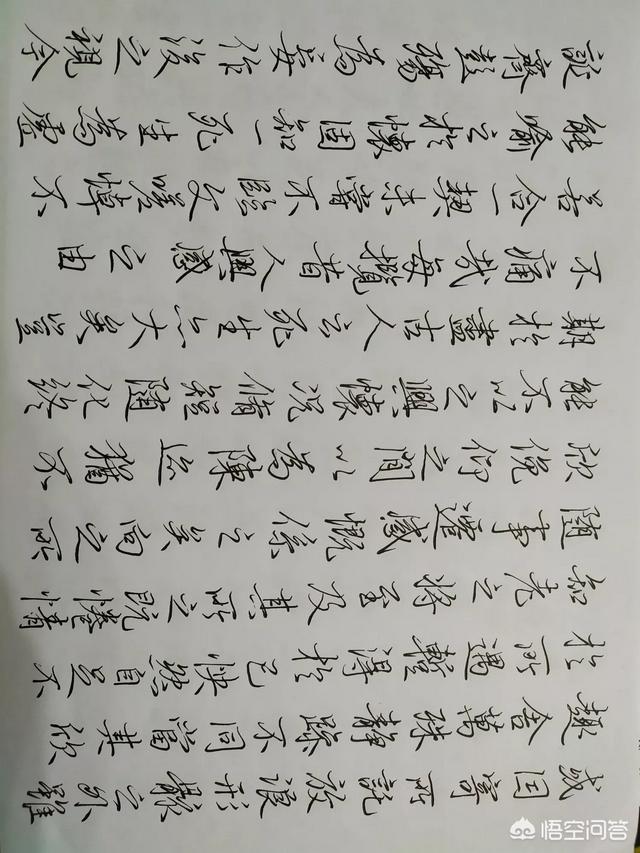 或因寄所託放浪形骸之外雖
趣舍萬殊靜躁不同當其欣
於所遇暫得於己快然自足不
知老之將至及其所之既惓情
隨事遷感慨係之矣向之所
欣俛仰之間以為陳迹猶不
能不以之興懷況脩短隨化終
期於盡古人云死生亦大矣豈
不痛哉每攬昔人興感之由
若合一契未嘗不臨文嗟悼不
能喻之於懷固知一死生為虛
誕齊彭殤為妄作後之視今
悟空问答